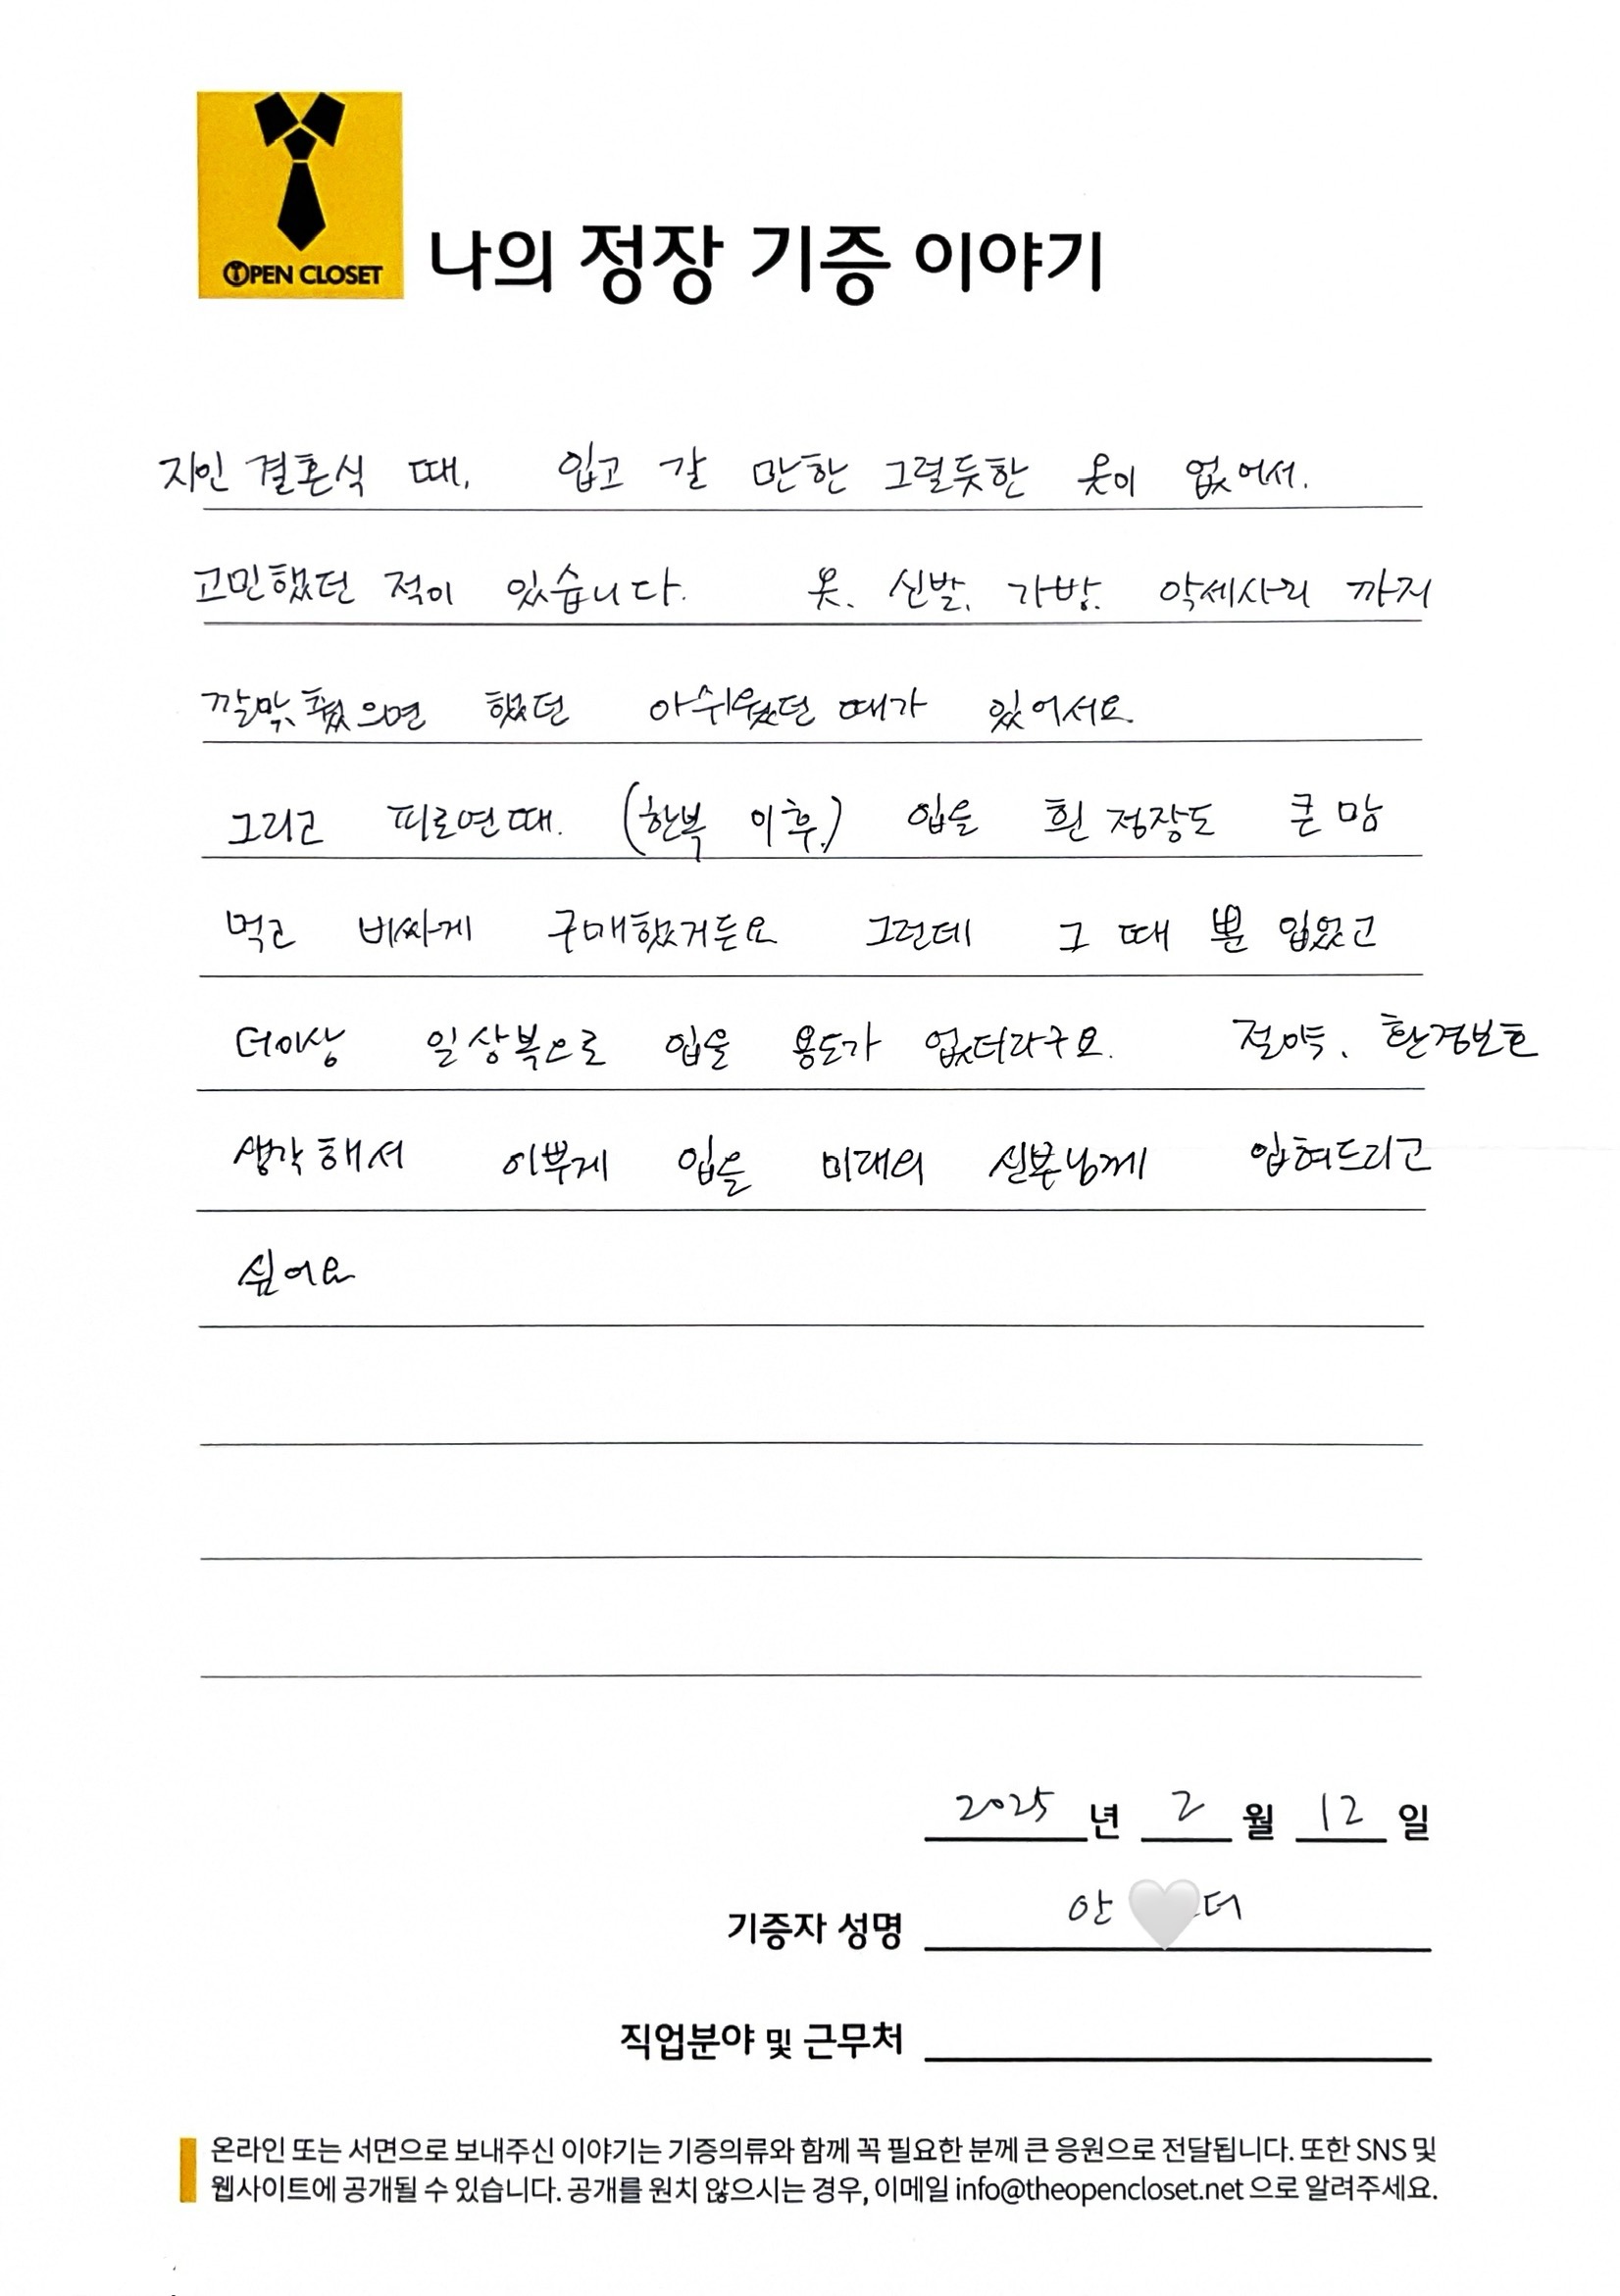 OPEN CLOSET
나의 정장 기증 이야기
지인 결혼식 때, 입고 갈 만한 그럴듯한 옷이 없어서.
고민했던 적이 있습니다. 옷, 신발, 가방, 악세사리 까지
깔맞춤했으면 했던 아쉬웠던 때가 있어서요.
그리고 피로연때. (한복 이후.) 입을 흰 정장도 큰 맘
먹고 비싸게 구매했거든요 그런데 그 때 뿐 입었고
더이상 일상복으로 입을 용도가 없더라구요. 절약, 환경보호
생각해서 이쁘게 입을 미래의 신부님께 입혀드리고
싶어요
2025 년 2 월 12 일
기증자 성명 안 더
직업분야 및 근무처
온라인 또는 서면으로 보내주신 이야기는 기증의류와 함께 꼭 필요한 분께 큰 응원으로 전달됩니다. 또한 SNS 및
웹사이트에 공개될 수 있습니다. 공개를 원치 않으시는 경우, 이메일 info@theopencloset.net 으로 알려주세요.